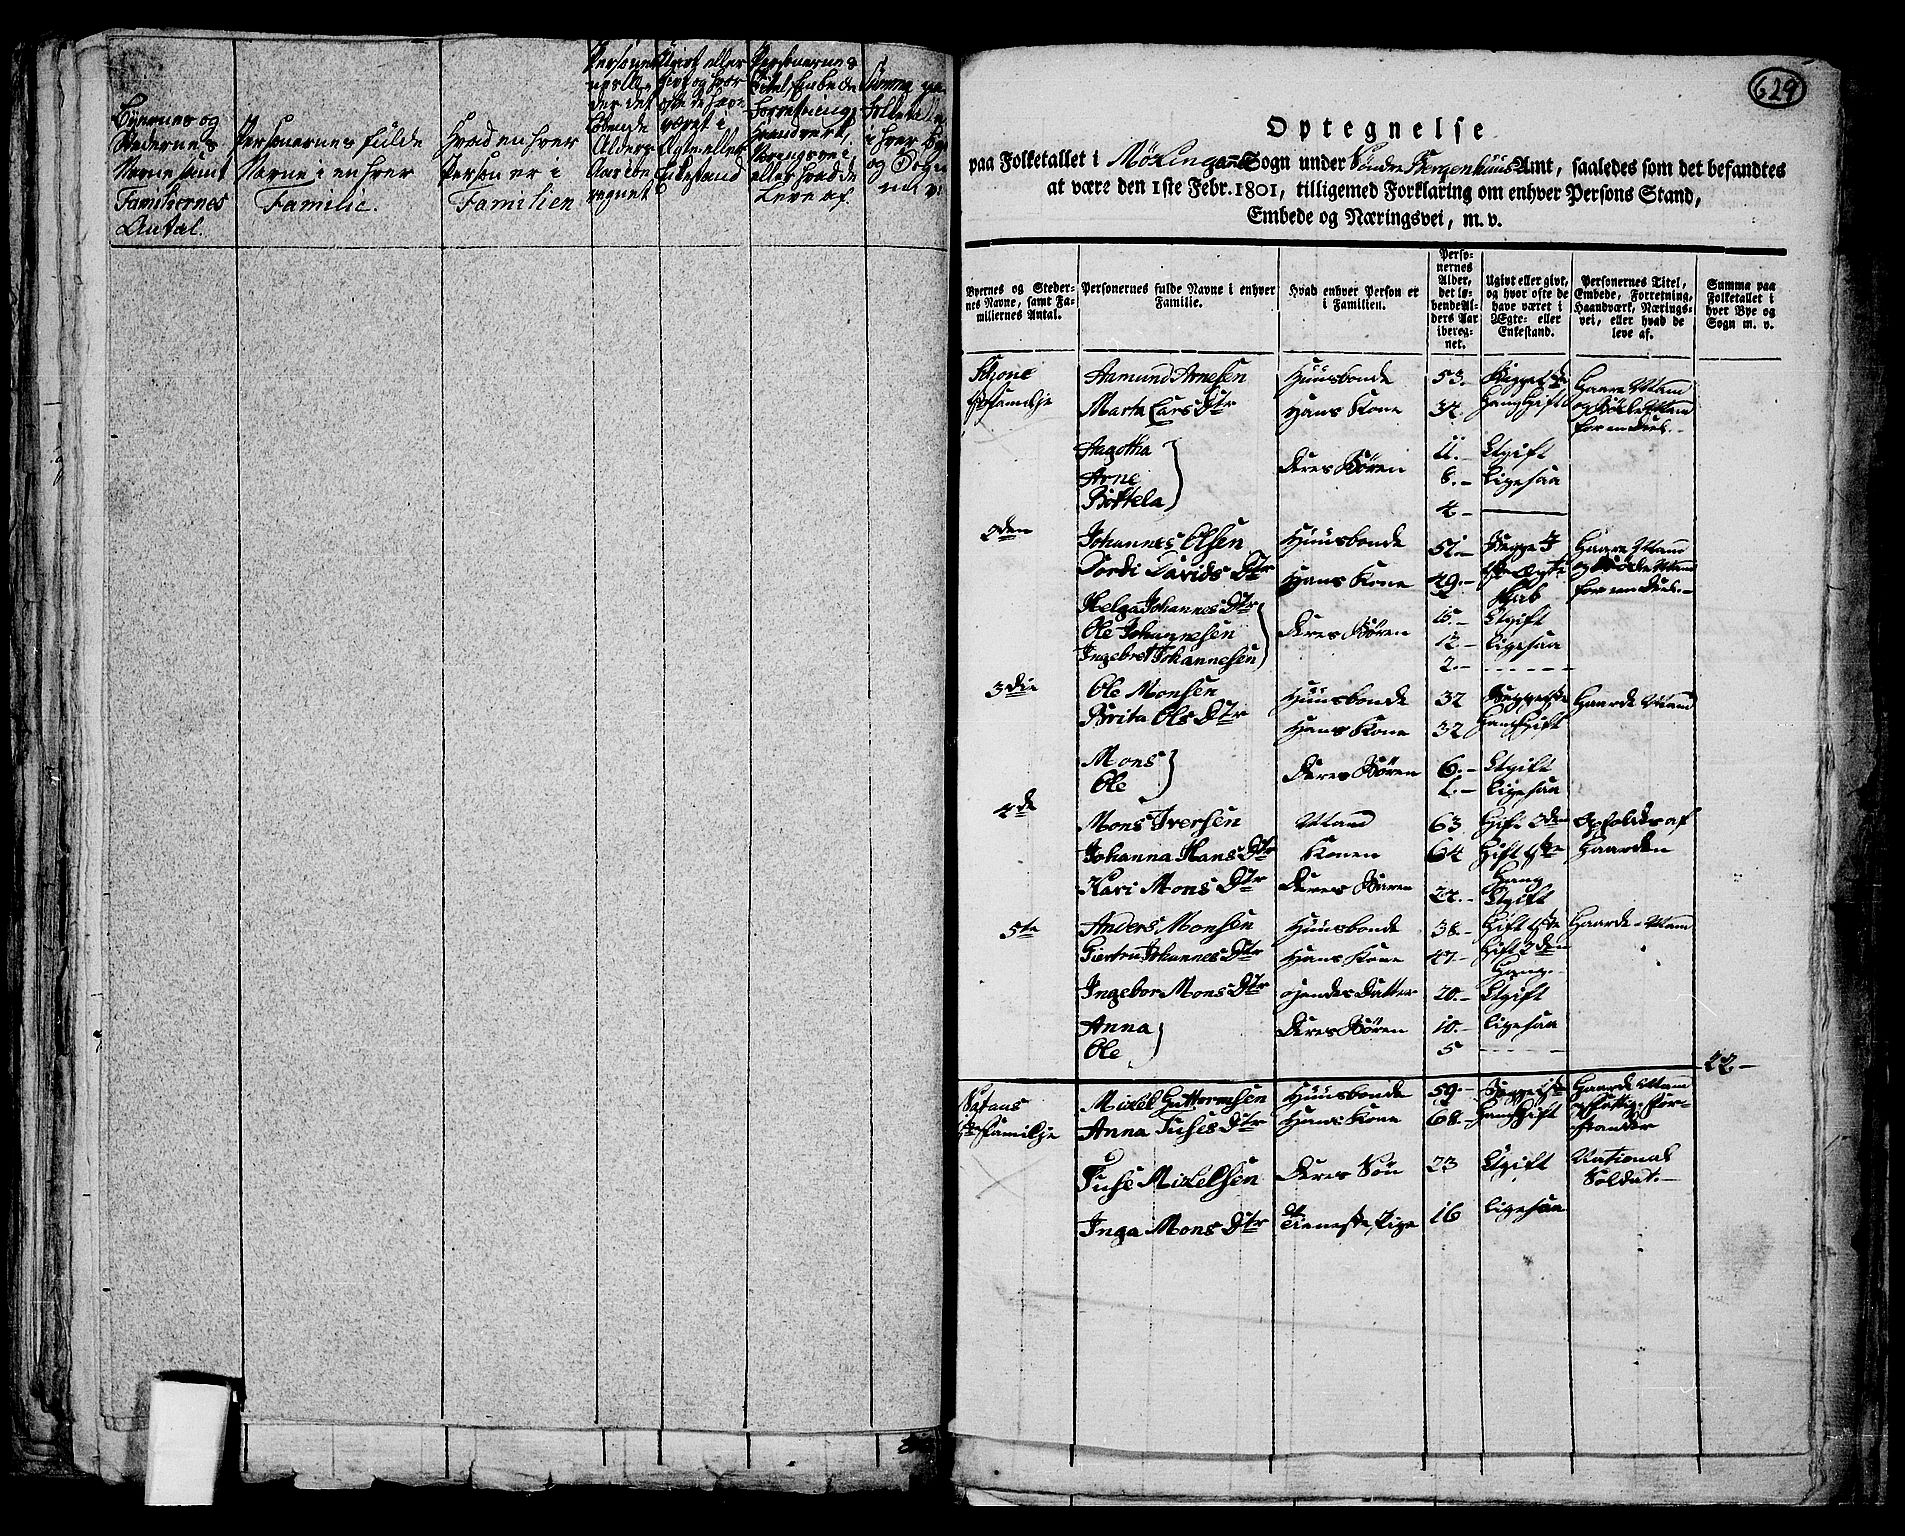 Byernes og
Stedernes
Navne samt
Familiernes
Antal.
Personernes fulde
Navne i enhver
Familie.
Hvad enhver
Person er i
Familien
Personer-
nes Al-
der det
Løbende
Alders
Aar ibe-
regnet
Ugivt eller
givt og hvor
ofte de have
været i
Ægte- eller
Enkestand
Personernes
Titel, Embede
Forretning
Haandverk,
Næringsvei
eller hvad de
Leve af.
Summa paa
Folketallet
i hver Bye
og Sogn
m. v.
629
Optegnelse
paa Folketallet i Møklinger Sogn under Søndre Bergenhuus Amt, saaledes som det befandtes
at være den 1ste Febr. 1801, tilligemed Forklaring om enhver Persons Stand,
Embede og Næringsvei, m. v.
Byernes og Steder-
nes Navne, samt Fa-
miliernes Antal.
Personernes fulde Navne i enhver
Familie.
Hvad enhver Person er
i Familien.
Perso-
nernes
Alder,
det lø-
bende Al-
ders Aar
ibereg-
net.
Ugivt eller givt,
og hvor ofte de
have været i
Ægte- eller
Enkestand.
Personernes Titel,
Embede, Forretning,
Haandværk, Nærings-
vei, eller hvad de
leve af.
Summa paa
Folketallet i
hver Bye og
Sogn m. v.
Aamund Arnesen Huusbonde 53.- Begge 1ste Gaard Mand
familje Marta Lars Dtr Hans Kone 34. Gang Gift
for en Deel.-
Angotha 11.- Ugift
Arne Deres Børn 8.- Ligesaa
4-
2den Johannes Olsen Huusbonde 51.- Begge i Gaard Mand
Dordi Davids Dtr Hans Kone 49.- 1ste Ægte
skab for en Deel.-
Helga Johannes Dtr 15.- Ugift
Ole Johannesen Deres Børn 12.- Ligesaa
Ingebret Johannesen 2.-
3die Ole Monsen Huusbonde 32 Begge 1ste Gaard Mand
Brita Ols Dtr Hans Kone 32 Gang Gift
Mons Deres Børn 6.- Ugift
Ole 1.- Ligesaa
4de Mons Iversen Mand 63 Gift 2den Opholdes af
Johanna Hans Dtr Konen 64 Gift 1ste Gaarden
Gang
Kari Mons Dtr Deres Barn 24.- Ugift
5te Anders Monsen Huusbonde 38.- Gift 1ste Gaard-Mand
Giertru Johannes Dtr Hans Kone 47.- Gift 2den
Gang.-
Ingebor Mons Dtr Hendes Datter 20.- Ugift
Anna Deres Børn 10.- Ligesaa
Ole 5
22.-
Mikel Guttormsen Huusbonde 59.- Begge 1ste Gaard Mand
1ste familje Anna Tufses Dtr Hans Kone 68.- Gang Gift og Fattig-For-
stander
Tufse Mikelsen Deres Søn 23 Ugift National
Soldat.-
Inga Mons Dtr Tieneste Pige 16 Ligesaa